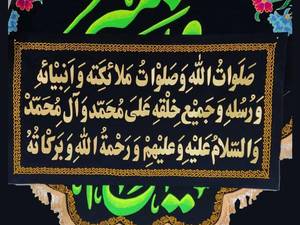 صَلَوٰاتُ اللهِ وَ صَلَوٰاتُ مَلٰائِكَتِهِ وَ اَنْبِيٰائِهِ
وَ رُسُلِهِ وَ جَمِيعِ خَلْقِهِ عَلىٰ مُحَمَّدٍ وَ آلِ مُحَمَّدٍ
وَ السَّلٰامُ عَلَيْهِ وَ عَلَيْهِمْ وَ رَحْمَةُ اللهِ وَ بَرَكٰاتُهُ